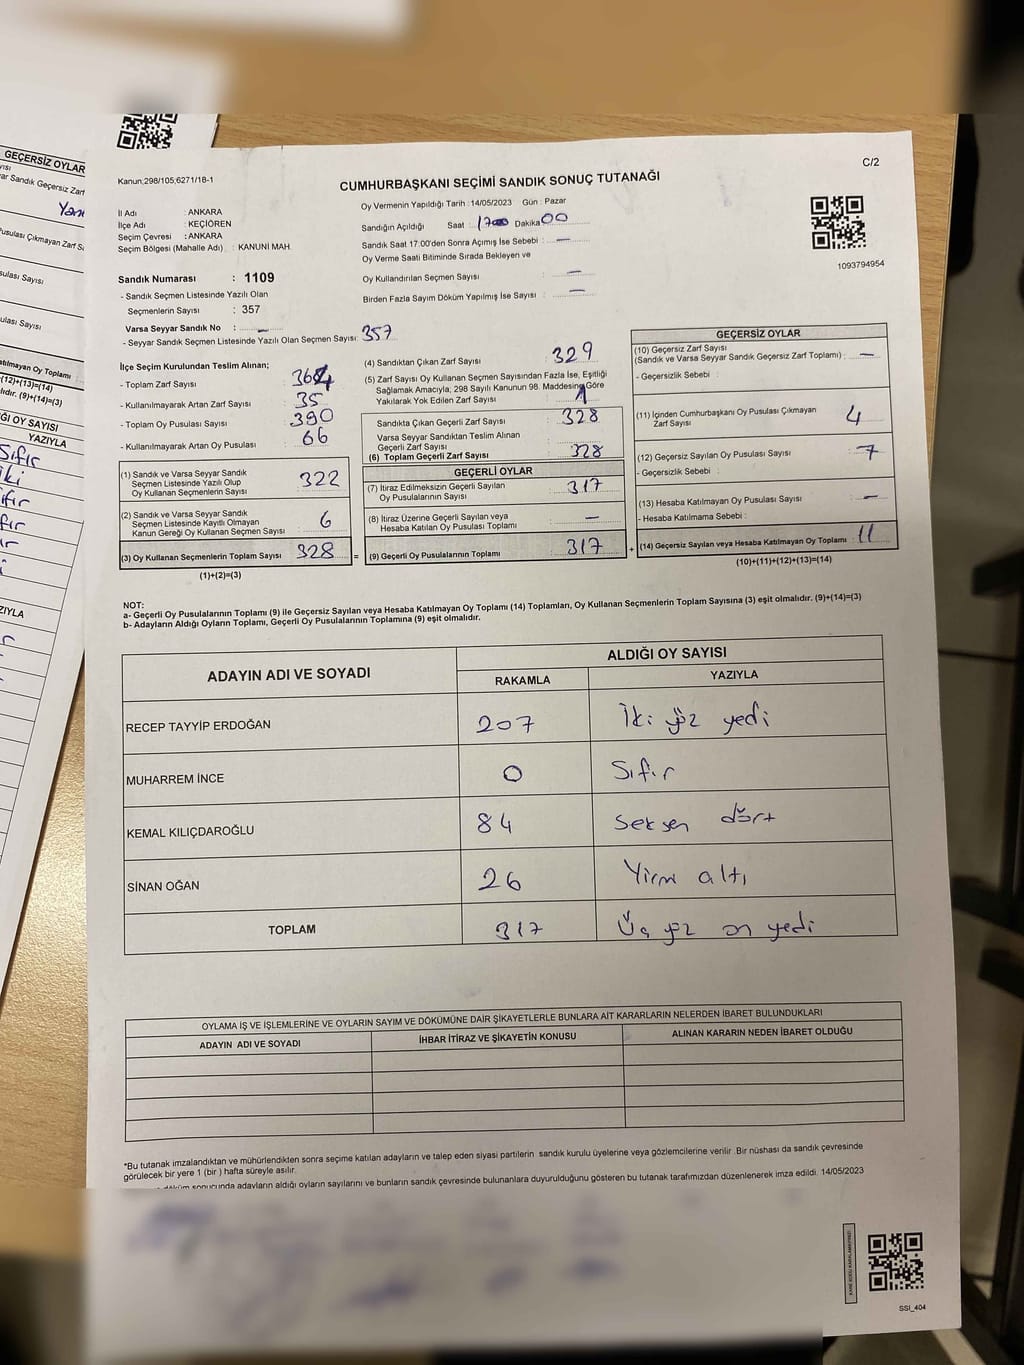 C/2
Kanun;298/105,6271/18-1
CUMHURBAŞKANI SEÇİMİ SANDIK SONUÇ TUTANAĞI
İl Adı : ANKARA
İlçe Adı : KEÇİÖREN
Seçim Çevresi : ANKARA
Seçim Bölgesi (Mahalle Adı) : KANUNİ MAH.
Sandık Numarası : 1109
- Sandık Seçmen Listesinde Yazılı Olan
Seçmenlerin Sayısı : 357
Varsa Seyyar Sandık No : -
- Seyyar Sandık Seçmen Listesinde Yazılı Olan Seçmen Sayısı: 357
Oy Vermenin Yapıldığı Tarih :14/05/2023 Gün : Pazar
Sandığın Açıldığı Saat : 17 Dakika 00
Sandık Saat 17:00'den Sonra Açımış İse Sebebi : -
Oy Verme Saati Bitiminde Sırada Bekleyen ve
Oy Kullandırılan Seçmen Sayısı -
Birden Fazla Sayım Döküm Yapılmış İse Sayısı : -
1093794954
İlçe Seçim Kurulundan Teslim Alınan;
- Toplam Zarf Sayısı : 364
- Kullanılmayarak Artan Zarf Sayısı : 35
- Toplam Oy Pusulası Sayısı : 390
- Kullanılmayarak Artan Oy Pusulası : 66
(1) Sandık ve Varsa Seyyar Sandık
Seçmen Listesinde Yazılı Olup
Oy Kullanan Seçmenlerin Sayısı : 322
(2) Sandık ve Varsa Seyyar Sandık
Seçmen Listesinde Kayıtlı Olmayan
Kanun Gereği Oy Kullanan Seçmen Sayısı : 6
(3) Oy Kullanan Seçmenlerin Toplam Sayısı : 328
(1)+(2)=(3)
(4) Sandıktan Çıkan Zarf Sayısı : 329
(5) Zarf Sayısı Oy Kullanan Seçmen Sayısından Fazla İse, Eşitliği
Sağlamak Amacıyla; 298 Sayılı Kanunun 98. Maddesine Göre
Yakılarak Yok Edilen Zarf Sayısı : 1
Sandıkta Çıkan Geçerli Zarf Sayısı : 328
Varsa Seyyar Sandıktan Teslim Alınan
Geçerli Zarf Sayısı :
(6) Toplam Geçerli Zarf Sayısı : 328
GEÇERLİ OYLAR
(7) İtiraz Edilmeksizin Geçerli Sayılan
Oy Pusulalarının Sayısı : 317
(8) İtiraz Üzerine Geçerli Sayılan veya
Hesaba Katılan Oy Pusulası Toplamı : -
= (9) Geçerli Oy Pusulalarının Toplamı : 317
GEÇERSİZ OYLAR
(10) Geçersiz Zarf Sayısı
(Sandık ve Varsa Seyyar Sandık Geçersiz Zarf Toplamı) : -
- Geçersizlik Sebebi :
(11) İçinden Cumhurbaşkanı Oy Pusulası Çıkmayan
Zarf Sayısı : 4
(12) Geçersiz Sayılan Oy Pusulası Sayısı : 7
- Geçersizlik Sebebi :
(13) Hesaba Katılmayan Oy Pusulası Sayısı : -
- Hesaba Katılmama Sebebi :
+ (14) Geçersiz Sayılan veya Hesaba Katılmayan Oy Toplamı : 11
(10)+(11)+(12)+(13)=(14)
NOT:
a- Geçerli Oy Pusulalarının Toplamı (9) ile Geçersiz Sayılan veya Hesaba Katılmayan Oy Toplamı (14) Toplamları, Oy Kullanan Seçmenlerin Toplam Sayısına (3) eşit olmalıdır. (9)+(14)=(3)
b- Adayların Aldığı Oyların Toplamı, Geçerli Oy Pusulalarının Toplamına (9) eşit olmalıdır.
ADAYIN ADI VE SOYADI ALDIĞI OY SAYISI
RAKAMLA YAZIYLA
RECEP TAYYİP ERDOĞAN 207 İki yüz yedi
MUHARREM İNCE 0 Sıfır
KEMAL KILIÇDAROĞLU 84 Seksen dört
SİNAN OĞAN 26 Yirmi altı
TOPLAM 317 Üç yüz on yedi
OYLAMA İŞ VE İŞLEMLERİNE VE OYLARIN SAYIM VE DÖKÜMÜNE DAİR ŞİKAYETLERLE BUNLARA AİT KARARLARIN NELERDEN İBARET BULUNDUKLARI
ADAYIN ADI VE SOYADI İHBAR İTİRAZ VE ŞİKAYETİN KONUSU ALINAN KARARIN NEDEN İBARET OLDUĞU
*Bu tutanak imzalandıktan ve mühürlendikten sonra seçime katılan adayların ve talep eden siyasi partilerin sandık kurulu üyelerine veya gözlemcilerine verilir .Bir nüshası da sandık çevresinde
görülecek bir yere 1 (bir ) hafta süreyle asılır.
döküm sonucunda adayların aldığı oyların sayılarını ve bunların sandık çevresinde bulunanlara duyurulduğunu gösteren bu tutanak tarafımızdan düzenlenerek imza edildi. 14/05/2023
SSI_404
GEÇERSİZ OYLAR
ar Sandık Geçersiz Zarf
usulası Çıkmayan Zarf S
sulası Sayısı
ulası Sayısı
atılmayan Oy Toplamı :
(12)+(13)=(14)
lıdır. (9)+(14)=(3)
ĞI OY SAYISI
YAZIYLA
Sıfır
iki